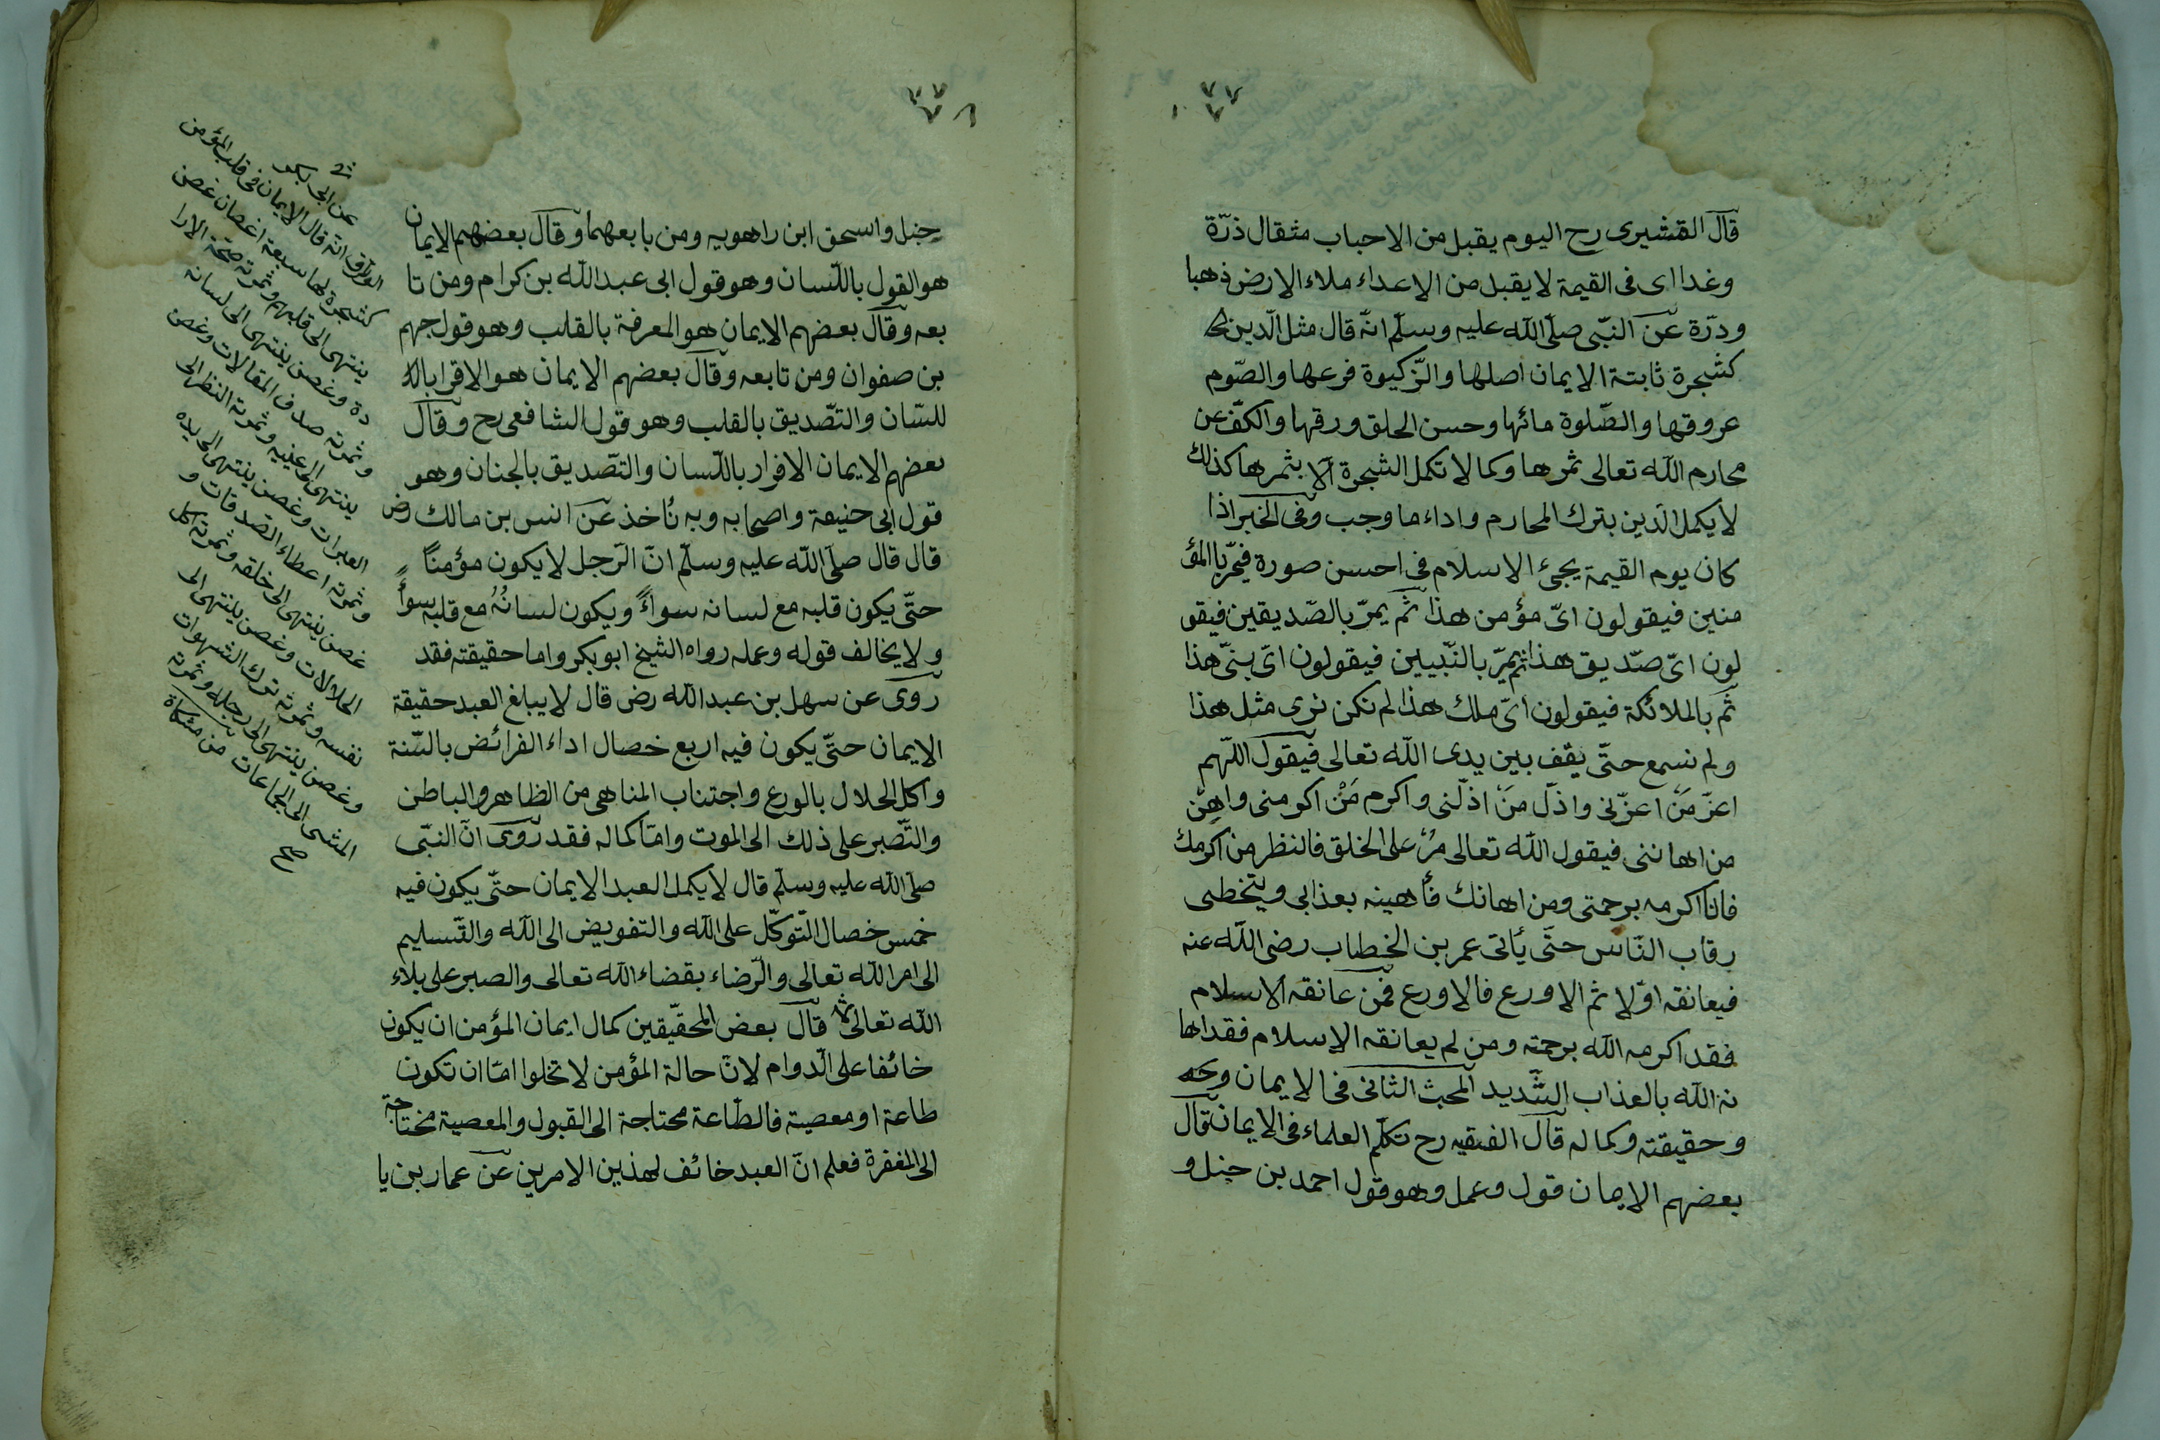 قال القشيرى رح اليوم يقبل من الاحباب مثقال ذرّة
وغدا اى فى القيمة لا يقبل من الاعداء ملاء الارض ذهبا
ودرّة عن النبّى صلّى الله عليه وسلّم انّه قال مثل الّدين
كشجرة ثابتة الايمان اصلها والزّكيوة فرعها والصّوم
عروقها والصّلوة مائها وحسن الخلق ورقها والكفّ عن
محارم الله تعالى ثمرها وكما لا تكمل الشجرة الّا بثمرها كذلك
لا يكمل الّدين بترك المحارم واداء ما وجب وفى الخبر اذا
كان يوم القيمة يجئ الاسلام فى احسن صورة فيمرّ با المؤ
منين فيقولون اىّ مؤمن هذا ثمّ يمرّ بالصّديقين فيقو
لون اىّ صّديق هذا ثم يمرّ بالنّبيين فيقولون اىّ بنىّ هذا
ثمّ بالملائكة فيقولون اىّ ملك هذا لم نكن نرى مثل هذا
ولم نسمع حتّى يقف بين يدى الله تعالى فيقول اللّهم
اعزّ مَنْ اعزّنى واذلّ مَنْ اذلّنى واكرم مَنْ اكرمنى واهن
من اهاننى فيقول الله تعالى مُرْ على الخلق فالنظر من اكرمك
فانا اكرمه برحمتى ومن اهانك فأهينه بعذابى ويتخطى
رقاب النّاس حتّى يأتى عمر بن الخطاب رضى الله عنه
فيعانقه اوّلا ثم الاورع فالاورع فمن عانقه الاسلام
فقد اكرمه الله برحمته ومن لم يعانقه الاسلام فقد اها
نه الله بالعذاب الشّديد المبحث الثانى فى الايمان
وحقيقته وكماله قال الفقيه رح تكلّم العلماء فى الايمان قال
بعضهم الايمان قول وعمل وهو قول احمد بن حنبل و
حنبل واسحق ابن راهويه ومن بابعهما وقال بعضهم الايمان
هو القول باللّسان وهو قول ابى عبد الله بن كرام ومن تا
بعه وقال بعضهم الايمان هو المعرفة بالقلب وهو قول جهم
بن صفوان ومن تابعه وقال بعضهم الايمان هو الاقرا بال
للسّان والتصّديق بالقلب وهو قول الشافعى رح وقال
بعضهم الايمان الاقرار باللّسان والتصّديق بالجنان وهو
قول ابى حنيفة واصحابه وبه نأخذ عن انس بن مالك رض
قال قال صلّى الله عليه وسلّم انّ الّرجل لا يكون مؤمنًا
حتّى يكون قلبه مع لسانه سواءً ويكون لسانُهُ مع قلبه سواءً
ولا يخالف قوله وعمله رواه الشيخ ابو بكر واما حقيقته فقد
روى عن سهل بن عبد الله رض قال لا يبلغ العبد حقيقة
الايمان حتّى يكون فيه اربع خصال اداء الفرائض بالسّنة
واكل الحلال بالورع واجتناب المناهى من الظاهر والباطن
والصّبر على ذلك الى الموت وامّا كماله فقد روى انّ النبّى
صلّى الله عليه وسلّم قال لا يكمل العبد الايمان حتّى يكون فيه
خمس خصال التّوكّل على الله والتفويض الى الله والتّسليم
الى امر الله تعالى والرّضاء بقضاء الله تعالى والصبر على بلاء
الله تعالى قال بعض المحقّيقين كمال ايمان المؤمن ان يكون
خائفا على الّدوام لانّ حالة المؤمن لا تخلوا امّا ان تكون
طاعة او معصية فالطّاعة محتاجة الى القبول والمعصية محتاجة
الى المغفرة فعلم انّ العبد خائف لهذين الامرين عن عمار بن يا
عن ابى بكر
الورّاق انّه قال الايمان فى قلب المؤمن
كشجرة لها سبعة اغصان غصن
ينتهى الى قلبهم وثمرته صحّة الارا
دة وغصن ينتهى الى لسانه
وثمرته صدق المقالات وغصن
ينتهى الى عينيه وثمرته النظر الى
العبرات وغصن ينتهى الى يده
وثمرته اعطاء الصّدقات و
غصن ينتهى الى خلقه وثمرته اكل
الحلالات وغصن ينتهى الى
نفسه وثمرته ترك الشهوات
وغصن ينتهى الى رجله وثمرته
المشى الى الجماعات من مشكاة
صح